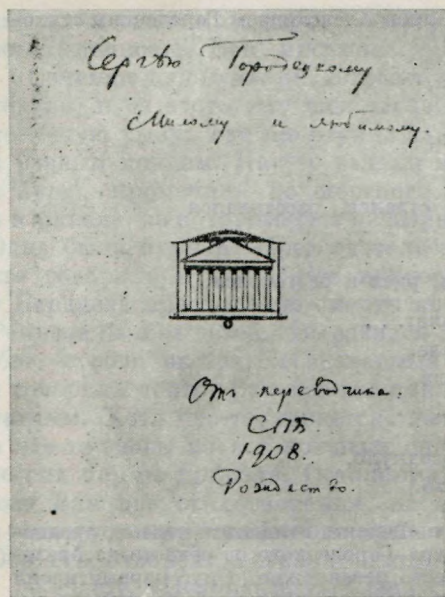 Сергѣю Городецкому
милому и любимому.
Отъ переводчика.
СПБ.
1908.
Рождество.